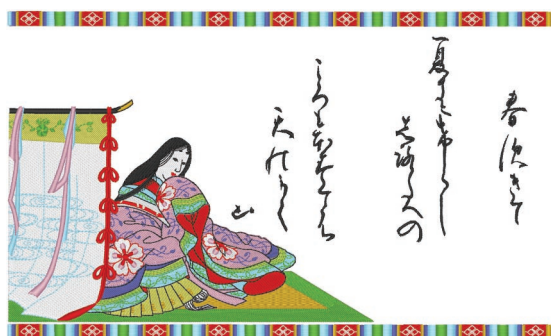 春過きて
夏来にけらし
しろたへの
ころもほすてふ
天のかく
山